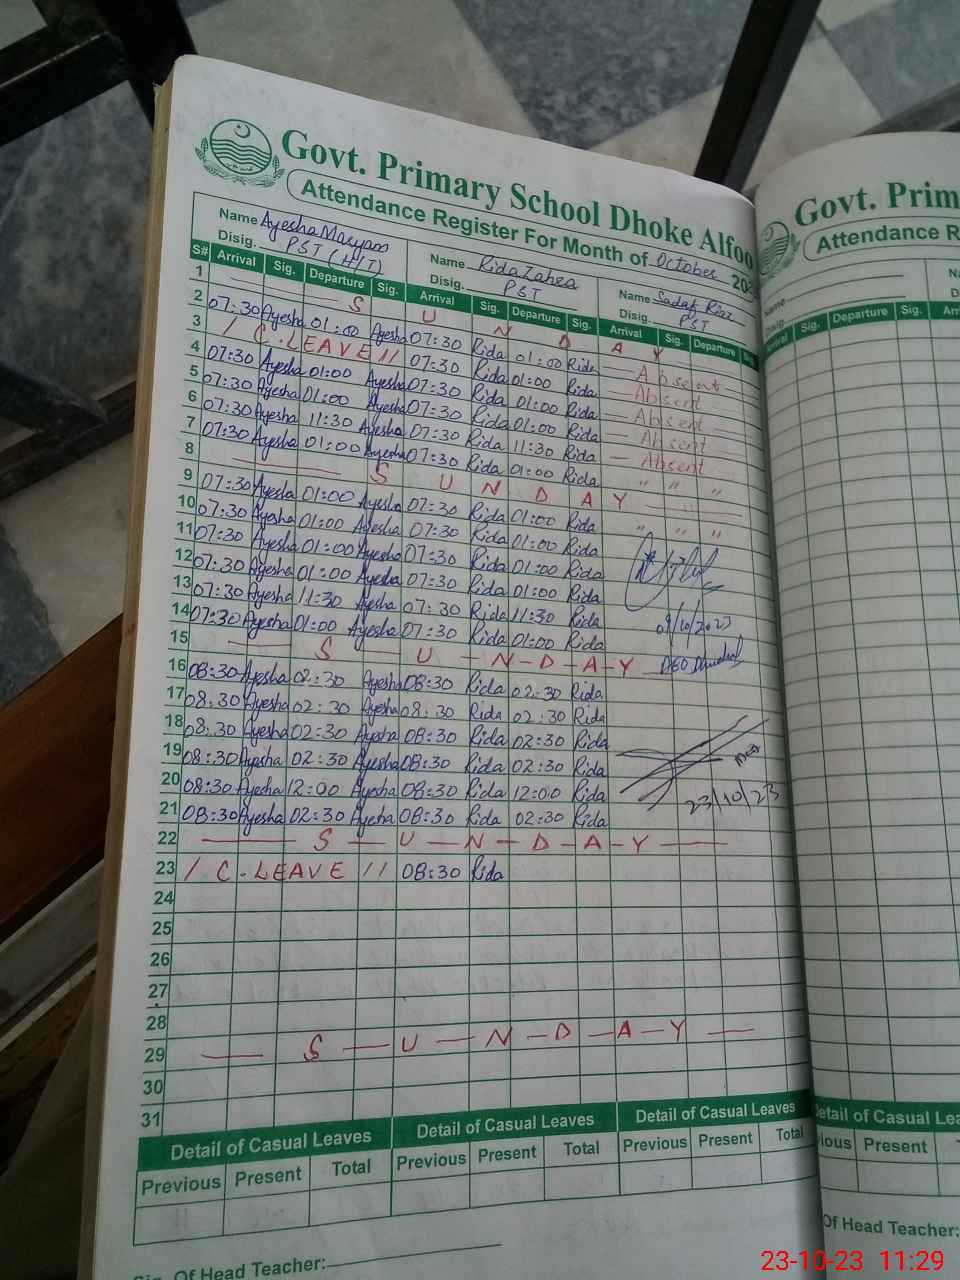 Govt. Primary School Dhoke Alfoo
Attendance Register For Month of October 202
Name Ayesha Maryam Name Rida Zahra Name Sadaf Riaz
Disig. PST (H/T) Disig. PST Disig. PST
S# Arrival Sig. Departure Sig. Arrival Sig. Departure Sig. Arrival Sig. Departure
1 S U N D A Y
2 07:30 Ayesha 01:00 Ayesha 07:30 Rida 01:00 Rida Absent
3 / C.LEAVE // 07:30 Rida 01:00 Rida Absent
4 07:30 Ayesha 01:00 Ayesha 07:30 Rida 01:00 Rida Absent
5 07:30 Ayesha 01:00 Ayesha 07:30 Rida 01:00 Rida Absent
6 07:30 Ayesha 11:30 Ayesha 07:30 Rida 11:30 Rida Absent
7 07:30 Ayesha 01:00 Ayesha 07:30 Rida 01:00 Rida " " "
8 S U N D A Y
9 07:30 Ayesha 01:00 Ayesha 07:30 Rida 01:00 Rida " " "
10 07:30 Ayesha 01:00 Ayesha 07:30 Rida 01:00 Rida
11 07:30 Ayesha 01:00 Ayesha 07:30 Rida 01:00 Rida
12 07:30 Ayesha 01:00 Ayesha 07:30 Rida 01:00 Rida
13 07:30 Ayesha 11:30 Ayesha 07:30 Rida 11:30 Rida
14 07:30 Ayesha 01:00 Ayesha 07:30 Rida 01:00 Rida
09/10/2023
15 S U N D A Y
16 08:30 Ayesha 02:30 Ayesha 08:30 Rida 02:30 Rida
17 08:30 Ayesha 02:30 Ayesha 08:30 Rida 02:30 Rida
18 08:30 Ayesha 02:30 Ayesha 08:30 Rida 02:30 Rida
19 08:30 Ayesha 02:30 Ayesha 08:30 Rida 02:30 Rida
20 08:30 Ayesha 12:00 Ayesha 08:30 Rida 12:00 Rida
23/10/23
21 08:30 Ayesha 02:30 Ayesha 08:30 Rida 02:30 Rida
22 S U N D A Y
23 / C.LEAVE // 08:30 Rida
24
25
26
27
28
29 S U N D A Y
30
31
Detail of Casual Leaves Detail of Casual Leaves Detail of Casual Leaves
Previous Present Total Previous Present Total Previous Present Total
Sig. Of Head Teacher:
Govt. Prim
Attendance R
Name
Disig.
Arrival Sig. Departure Sig.
Detail of Casual Lea
Previous Present
Of Head Teacher:
23-10-23 11:29